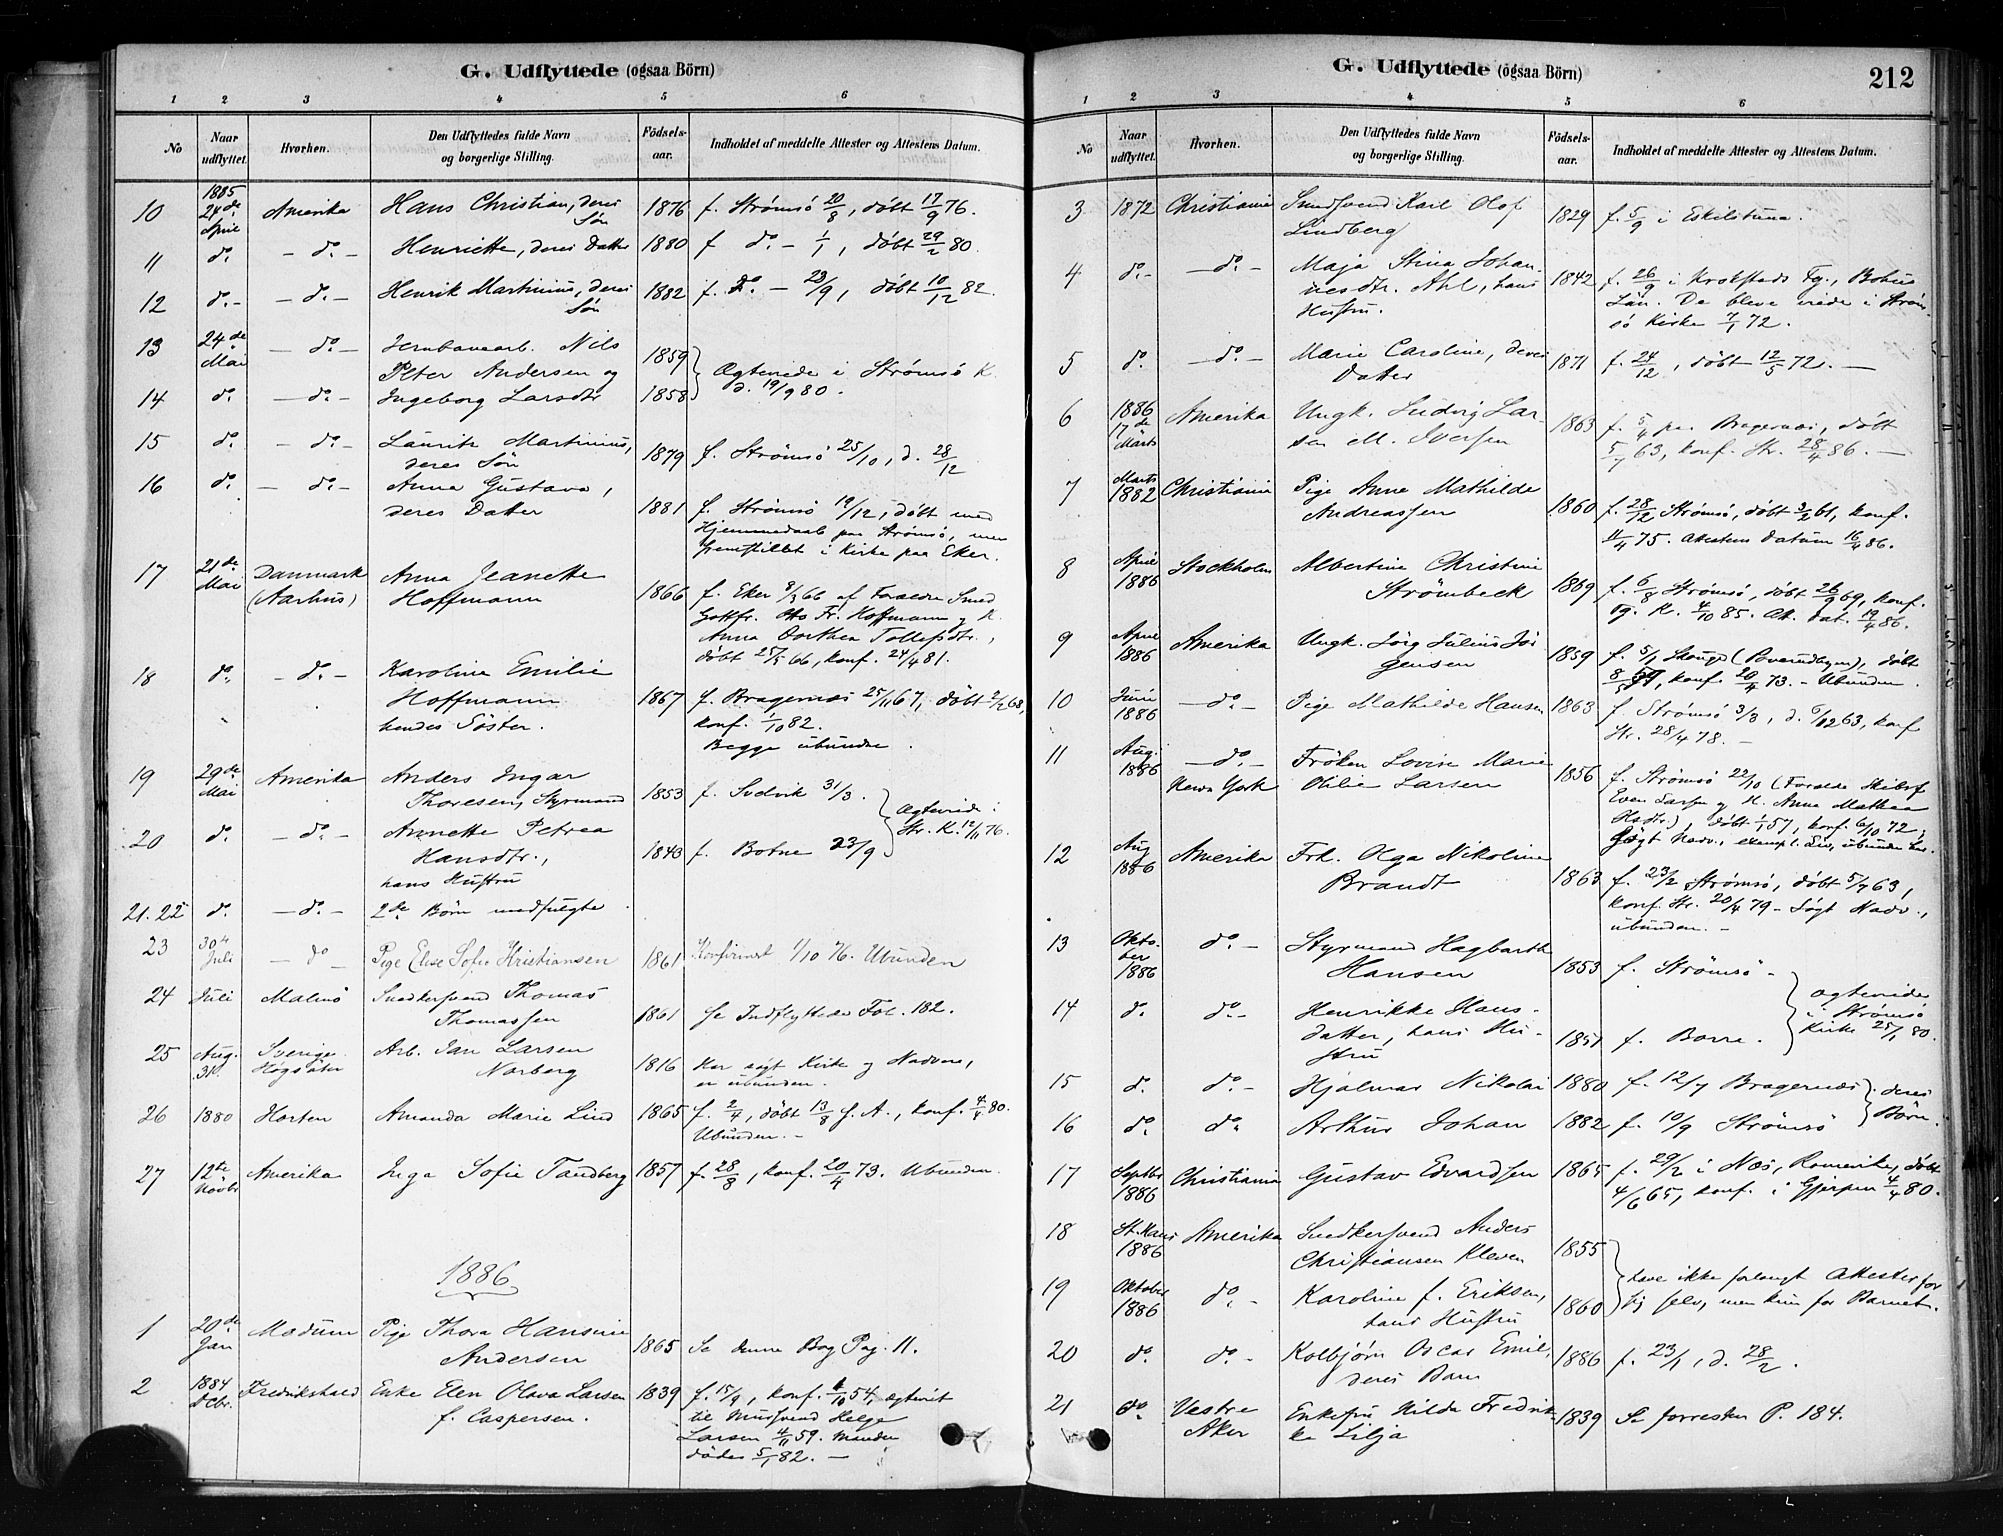 G. Udflyttede (ogsaa Börn)
1 2 3 4 5 6
No
Naar udflyttet.
Hvorhen.
Den Udflyttedes fulde Navn og borgerlige Stilling.
Födsels-aar.
Indholdet af meddelte Attester og Attestens Datum.
10 1885 24de April Amerika Hans Christian, deres Søn 1876 f. Strömsö 20/8, döbt 17/9 76.
11 do. - do. - Henriette, deres Datter 1880 f do. - 1/1, döbt 29/2 80.
12 do. - - do. - Henrik Martinius, deres Søn 1882 f. do. - 23/9, döbt 10/12 82.
13 24de Mai - do. - Jernbanearb. Nils Peter Andersen og 1859
Ægteviede i Strömsö K. d. 19/9 80.
14 do. - do. - Ingeborg Larsdtr 1858
15 do. - do. - Lauritz Martinius, deres Søn 1879 f. Strömsö 25/10, d. 28/12
16 do. - do. - Anna Gustava, deres Datter 1881 f. Strömsö 19/12, döbt med
Hjemmedaab paa Strömsö, men
fremstillet i Kirke paa Eker.
17 21de Mai Danmark (Aarhus) Anna Jeanette Hoffmann 1866 f. Eker 8/3 66 af Forældre Smed
Gottfr. Otto Fr. Hoffmann og H.
Anna Dorthea Tollefsdtr.,
döbt 25/5 66, konf. 24/4 81.
18 do. - do. - Karoline Emilie Hoffmann hendes Söster. 1867 f. Bragernæs 25/11 67, döbt 2/2 68,
konf. 1/10 82.
Begge ubundne.
19 29de Mai Amerika Anders Ingar Thoresen, Styrmand 1853 f. Svelvik 31/3.
Ægteviede i Str. K. 12/11 76.
20 do. - do. - Annette Petrea Hansdtr., hans Hustru 1843 f. Botne 23/9
21.22 do. - do. - 2de Börn medfulgte.
23 30te Juli - do - Pige Else Sofie Kristiansen 1861 Konfirmert 1/10 76. Ubunden
24 Juli Malmö Snedkersvend Thomas Thomassen 1861 Se Indflyttede Fol. 182.
25 Aug. 31. Sverige. Högsäter Arb. Jan Larsen Norberg 1816 Har sögt Kirke og Nadvere,
er ubunden.
26 1880 Horten Amanda Marie Lind 1865 f. 2/7, döbt 13/8 s. A., konf. 4/4 80.
Ubunden. -
27 12te Novbr Amerika Inga Sofie Tandberg 1857 f. 28/8, konf. 20/4 73. Ubunden.
1886
1 20de Jan Modum Pige Thora Hansine Andersen 1865 Se denne Bog Pag. 11.
2 1884 Dcbr. Fredrikshald Enke Elen Olava Larsen f. Caspersen. 1839 f. 15/9, konf. 1/10 54, ægteviet
til Mursvend Helge
Larsen 4/11 59. Manden
döde 5/1 82. -
G. Udflyttede (ogsaa Börn)
212
1 2 3 4 5 6
No
Naar udflyttet.
Hvorhen.
Den Udflyttedes fulde Navn og borgerlige Stilling.
Födsels-aar.
Indholdet af meddelte Attester og Attestens Datum.
3 1872 Christiania Smedsvend Karl Olof Lindberg 1829 f. 5/9 i Eskilstuna.
4 do. - - do. - Maja Stina Johannesdtr. Ahl, hans Hustru. 1842 f. 26/9 i Krokstads Fg., Bohus
Län. De bleve viede i Ström-
sö Kirke 7/1 72.
5 do. - do. - Marie Caroline, deres Datter 1871 f. 24/12, döbt 12/5 72. -
6 1886 17de Marts Amerika Ungk. Ludvig Larsen M. Iversen 1863 f. 5/4 paa Bragernæs, döbt
5/7 63, konf. Str. 28/4 86. -
7 Marts 1882 Christiania Pige Anne Mathilde Andreassen 1860 f. 28/12 Strömsö, döbt 3/2 61, konf.
11/4 75. Attestens Datum 16/4 86.
8 April 1886 Stockholm Albertine Christine Strömbeck 1869 f. 6/8 Strömsö, döbt 26/9 69, konf.
Tg. K. 4/10 85. At. dat. 19/4 86.
9 April 1886 Amerika Ungk. Jörg Julius Jörgensen 1859 f. 5/1 Skouge, döbt
8/5 59, konf. 20/4 73. - Ubunden.
10 Juni 1886 - do. - Pige Mathilde Hansen 1863 f Strömsö 3/3, d. 6/12 63, konf
Str. 28/4 78. -
11 Aug. 1886 - do. - New York Fröken Lovise Marie Othilie Larsen 1856 f. Strömsö 22/10 (Foræld. Skibsf
Even Larsen og H. Anna Mathea
Hsdtr.), döbt 1/1 57, konf. 6/10 72,
Sögt Nadv., exempl. Liv, ubunden
12 Aug 1886 Amerika Frk. Olga Nikoline Brandt 1863 f. 23/2 Strömsö, döbt 5/7 63,
konf. Str. 20/4 79 - Sögt Nadv.,
ubunden. -
13 Oktober 1886 do. - Styrmand Hagbarth Hansen 1853 f. Strömsö -
Ægteviede i Strömsö Kirke 25/1 80.
14 do. do. - Henrikke Hansdatter, hans Hustru 1857 f. Borre.
15 do. do. - Hjalmar Nikolai 1880 f. 12/7 Bragernæs
deres Börn.
16 do. do. Arthur Johan 1882 f. 19/9 Strömsö
17 Septbr 1886 Christiania Gustav Edvardsen 1865 f. 29/2 i Næs, Romerike, döbt
4/6 65, konf. i Gjerpen 4/4 80.
18 St. Hans 1886 Amerika Snedkersvend Anders Christiansen Kleven 1855
have ikke forlangt Attester for
sig selv, men kun for Barnet.
19 Oktober 1886 do. - Karoline f. Eriksen, hans Hustru 1860
20 do. do. - Kolbjörn Oscar Emil, deres Barn 1886 f. 23/1, d. 28/2.
21 do Vestre Aker Enkefru Hilda Fredrikke Lilja 1839 Se P. 184.